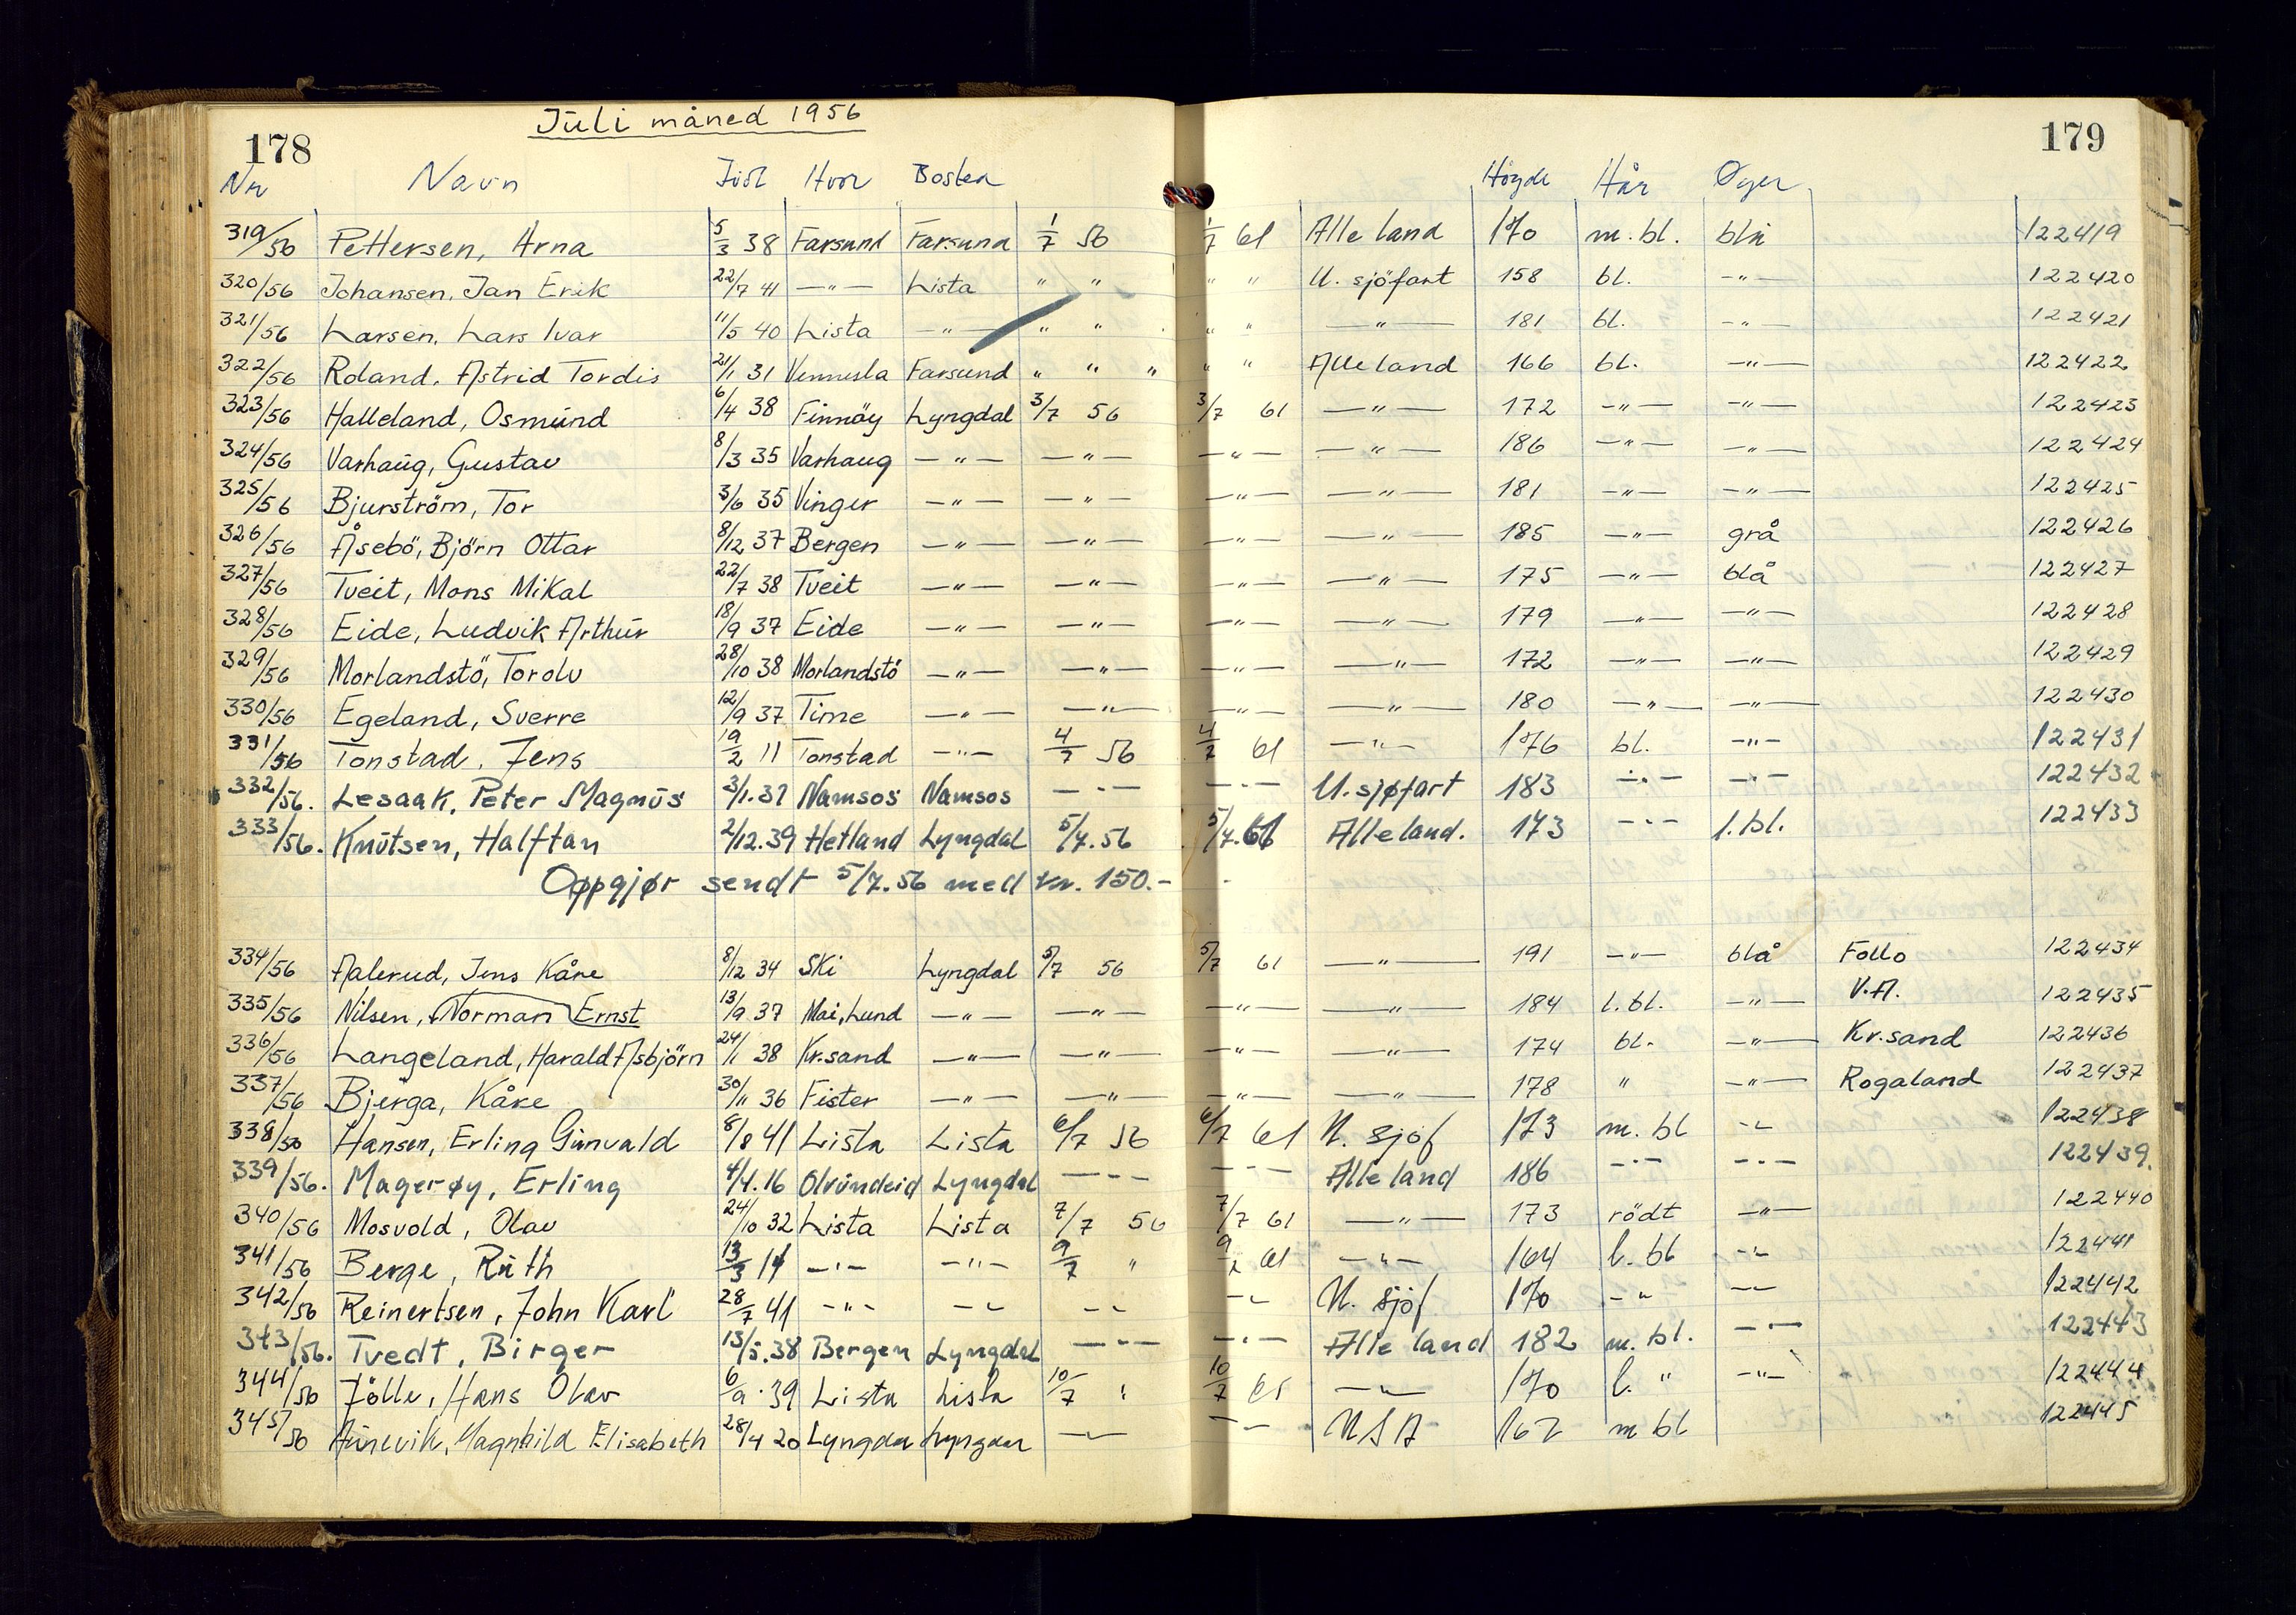 Juli måned 1956
178 179
Nr Navn Född Hvor Bosted Høyde Hår Øyer
319/56 Pettersen, Arna 5/3 38 Farsund Farsund 1/7 56 1/7 61 Alle land 170 m. bl. blå 122419
320/56 Johansen, Jan Erik 22/7 41 —"— Lista " " " " U. sjöfart 158 bl. —"— 122420
321/56 Larsen, Lars Ivar 11/5 40 Lista —"— " " " " —"— 181 bl. —"— 122421
322/56 Roland, Astrid Tordis 21/1 31 Vennesla Farsund " " " " " Alle land 166 bl. —"— 122422
323/56 Halleland, Osmund 6/4 38 Finnöy Lyngdal 3/7 56 3/7 61 —"— 172 —"— —"— 122423
324/56 Varhaug, Gustav 8/3 35 Varhaug —"— —"— —"— —"— 186 —"— —"— 122424
325/56 Bjurström, Tor 3/6 35 Vinger —"— —"— —"— —"— 181 —"— —"— 122425
326/56 Åsebö, Björn Ottar 8/12 37 Bergen —"— —"— —"— —"— 185 —"— grå 122426
327/56 Tveit, Mons Mikal 22/7 38 Tveit —"— —"— —"— —"— 175 —"— blå 122427
328/56 Eide, Ludvik Arthur 18/9 37 Eide —"— —"— —"— —"— 179 —"— —"— 122428
329/56 Morlandstö, Torolv 28/10 38 Morlandstö —"— —"— —"— —"— 172 —"— —"— 122429
330/56 Egeland, Sverre 12/9 37 Time —"— —"— —"— —"— 180 —"— —"— 122430
331/56 Tonstad, Jens 19/2 11 Tonstad —"— 4/7 56 4/7 61 —"— 176 bl. —"— 122431
332/56. Lesaak, Peter Magnus 3/1.37 Namsos Namsos —"— —"— U. sjøfart 183 —"— —"— 122432
333/56. Knutsen, Halftan 2/12.39 Hetland Lyngdal 5/7.56 5/7.61 Alle land. 173 —"— l.bl. 122433
Oppgjør sendt 5/7.56 med kr. 150.-
334/56 Aalerud, Jens Kåre 8/12 34 Ski Lyngdal 5/7 56 5/7 61 —"— 191 —"— blå Follo 122434
335/56 Nilsen, Norman Ernst 13/9 37 Mai, Lund —"— —"— —"— —"— 184 l. bl. —"— V.A. 122435
336/56 Langeland, Harald Asbjörn 24/1 38 Kr.sand —"— —"— —"— —"— 174 bl. —"— Kr.sand 122436
337/56 Bjerga, Kåre 30/11 36 Fister —"— —"— —"— —"— 178 " —"— Rogaland 122437
338/56 Hansen, Erling Gunvald 8/8 41 Lista Lista 6/7 56 6/7 61 U. sjöf 173 m. bl —"— 122438
339/56. Magerøy, Erling 4/4.16 Olvundeid Lyngdal —"— —"— Alle land 186 —"— —"— 122439.
340/56 Mosvold, Olav 24/10 32 Lista Lista 7/7 56 7/7 61 —"— 173 rödt —"— 122440
341/56 Berge, Ruth 13/3 14 —"— —"— 9/7 " 9/7 61 —"— 164 l. bl —"— 122441
342/56 Reinertsen, John Karl 28/7 41 —"— —"— —"— —"— U. sjöf 170 —"— —"— 122442
343/56. Tvedt, Birger 13/5.38 Bergen Lyngdal —"— —"— Alle land 182 m. bl. —"— 122443
344/56 Jölle, Hans Olav 6/9.39 Lista Lista 10/7 " 10/7 61 —"— 170 l. " —"— 122444
345/56 Magnhild Elisabeth 28/4 20 Lyngdal Lyngdal —"— —"— USA 162 m bl 122445